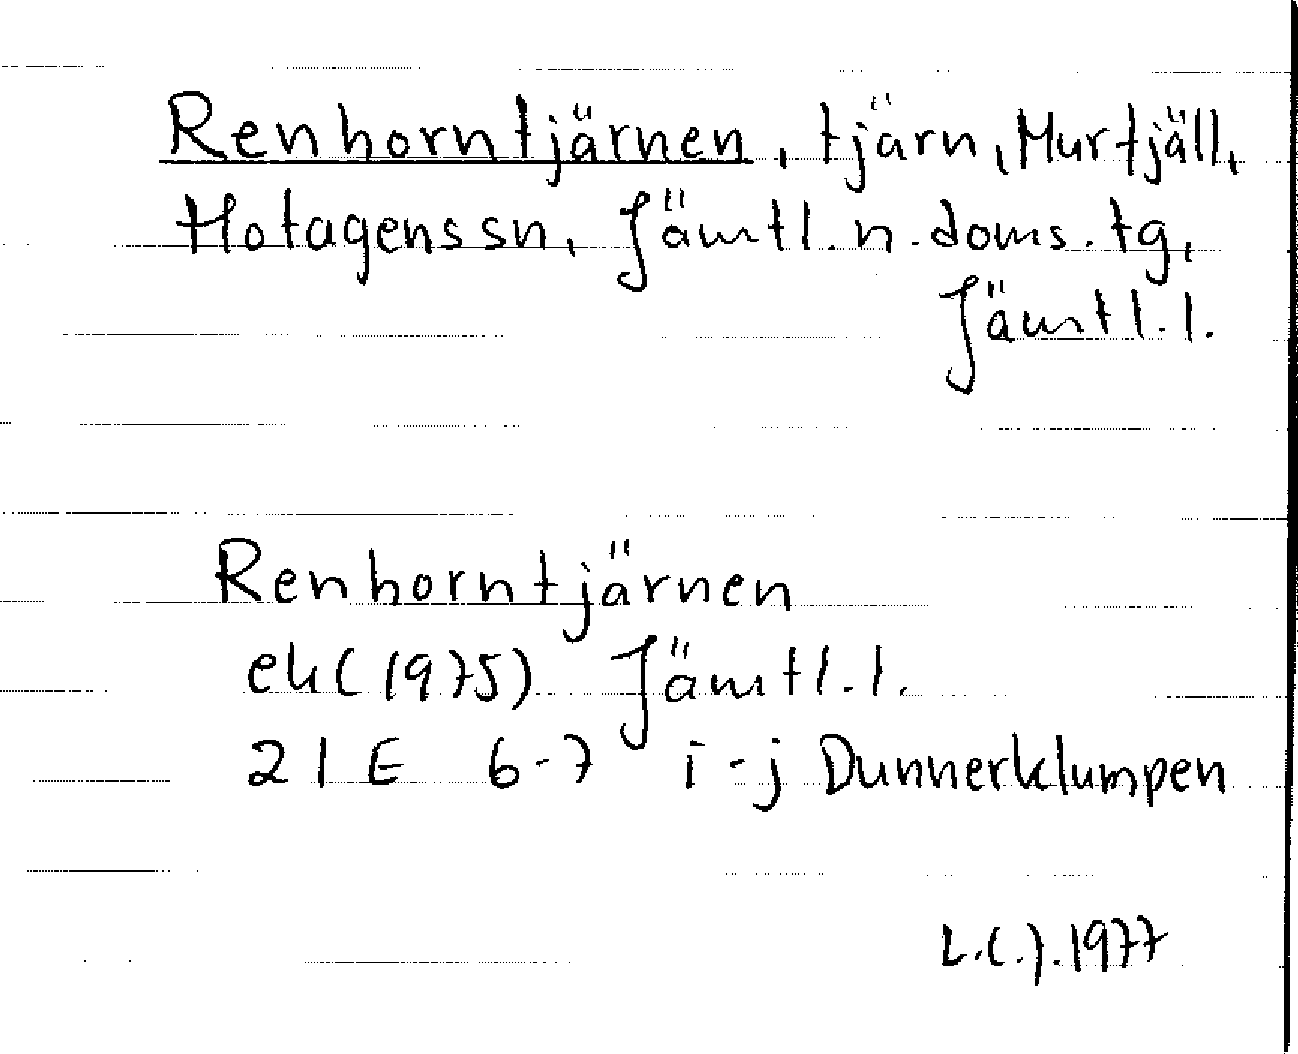 Renhorntjärnen, tjärn, Murfjäll,
Hotagens sn, Jämtl. n. doms. tg,
Jämtl. l.
Renhorntjärnen
ek (1975) Jämtl. l.
21 E 6-7 i-j Dunnerklumpen
L.C.J. 1977